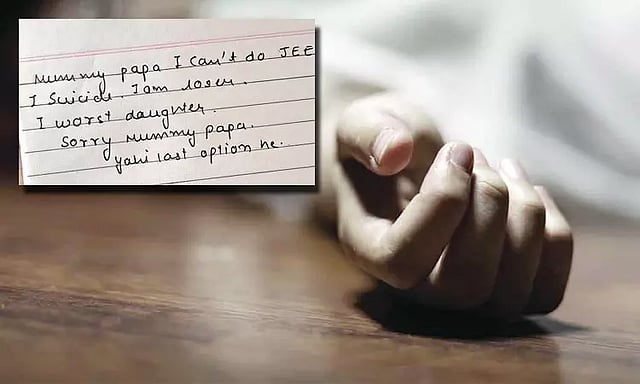 Mummy papa I can't do JEE
I Suicide. I am loser.
I worst daughter.
Sorry Mummy papa.
yahi last option he.